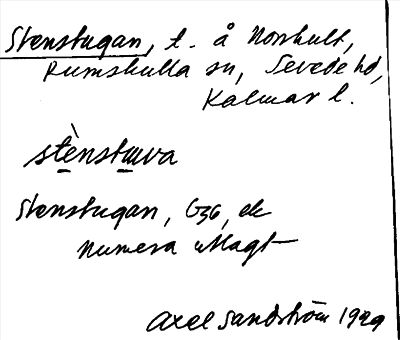 Stenstugan, t. å Norrhult,
Rumskulla sn, Sevede hd,
Kalmar l.
stènstuva
Stenstugan, G36, ek
numera utlagt
Axel Sandström 1929